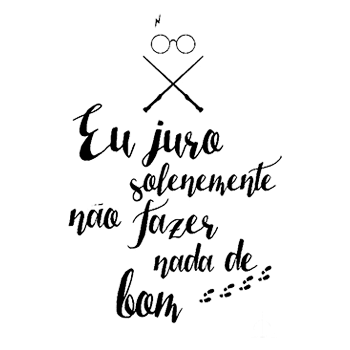 Eu juro
solenemente
não fazer
nada de
bom